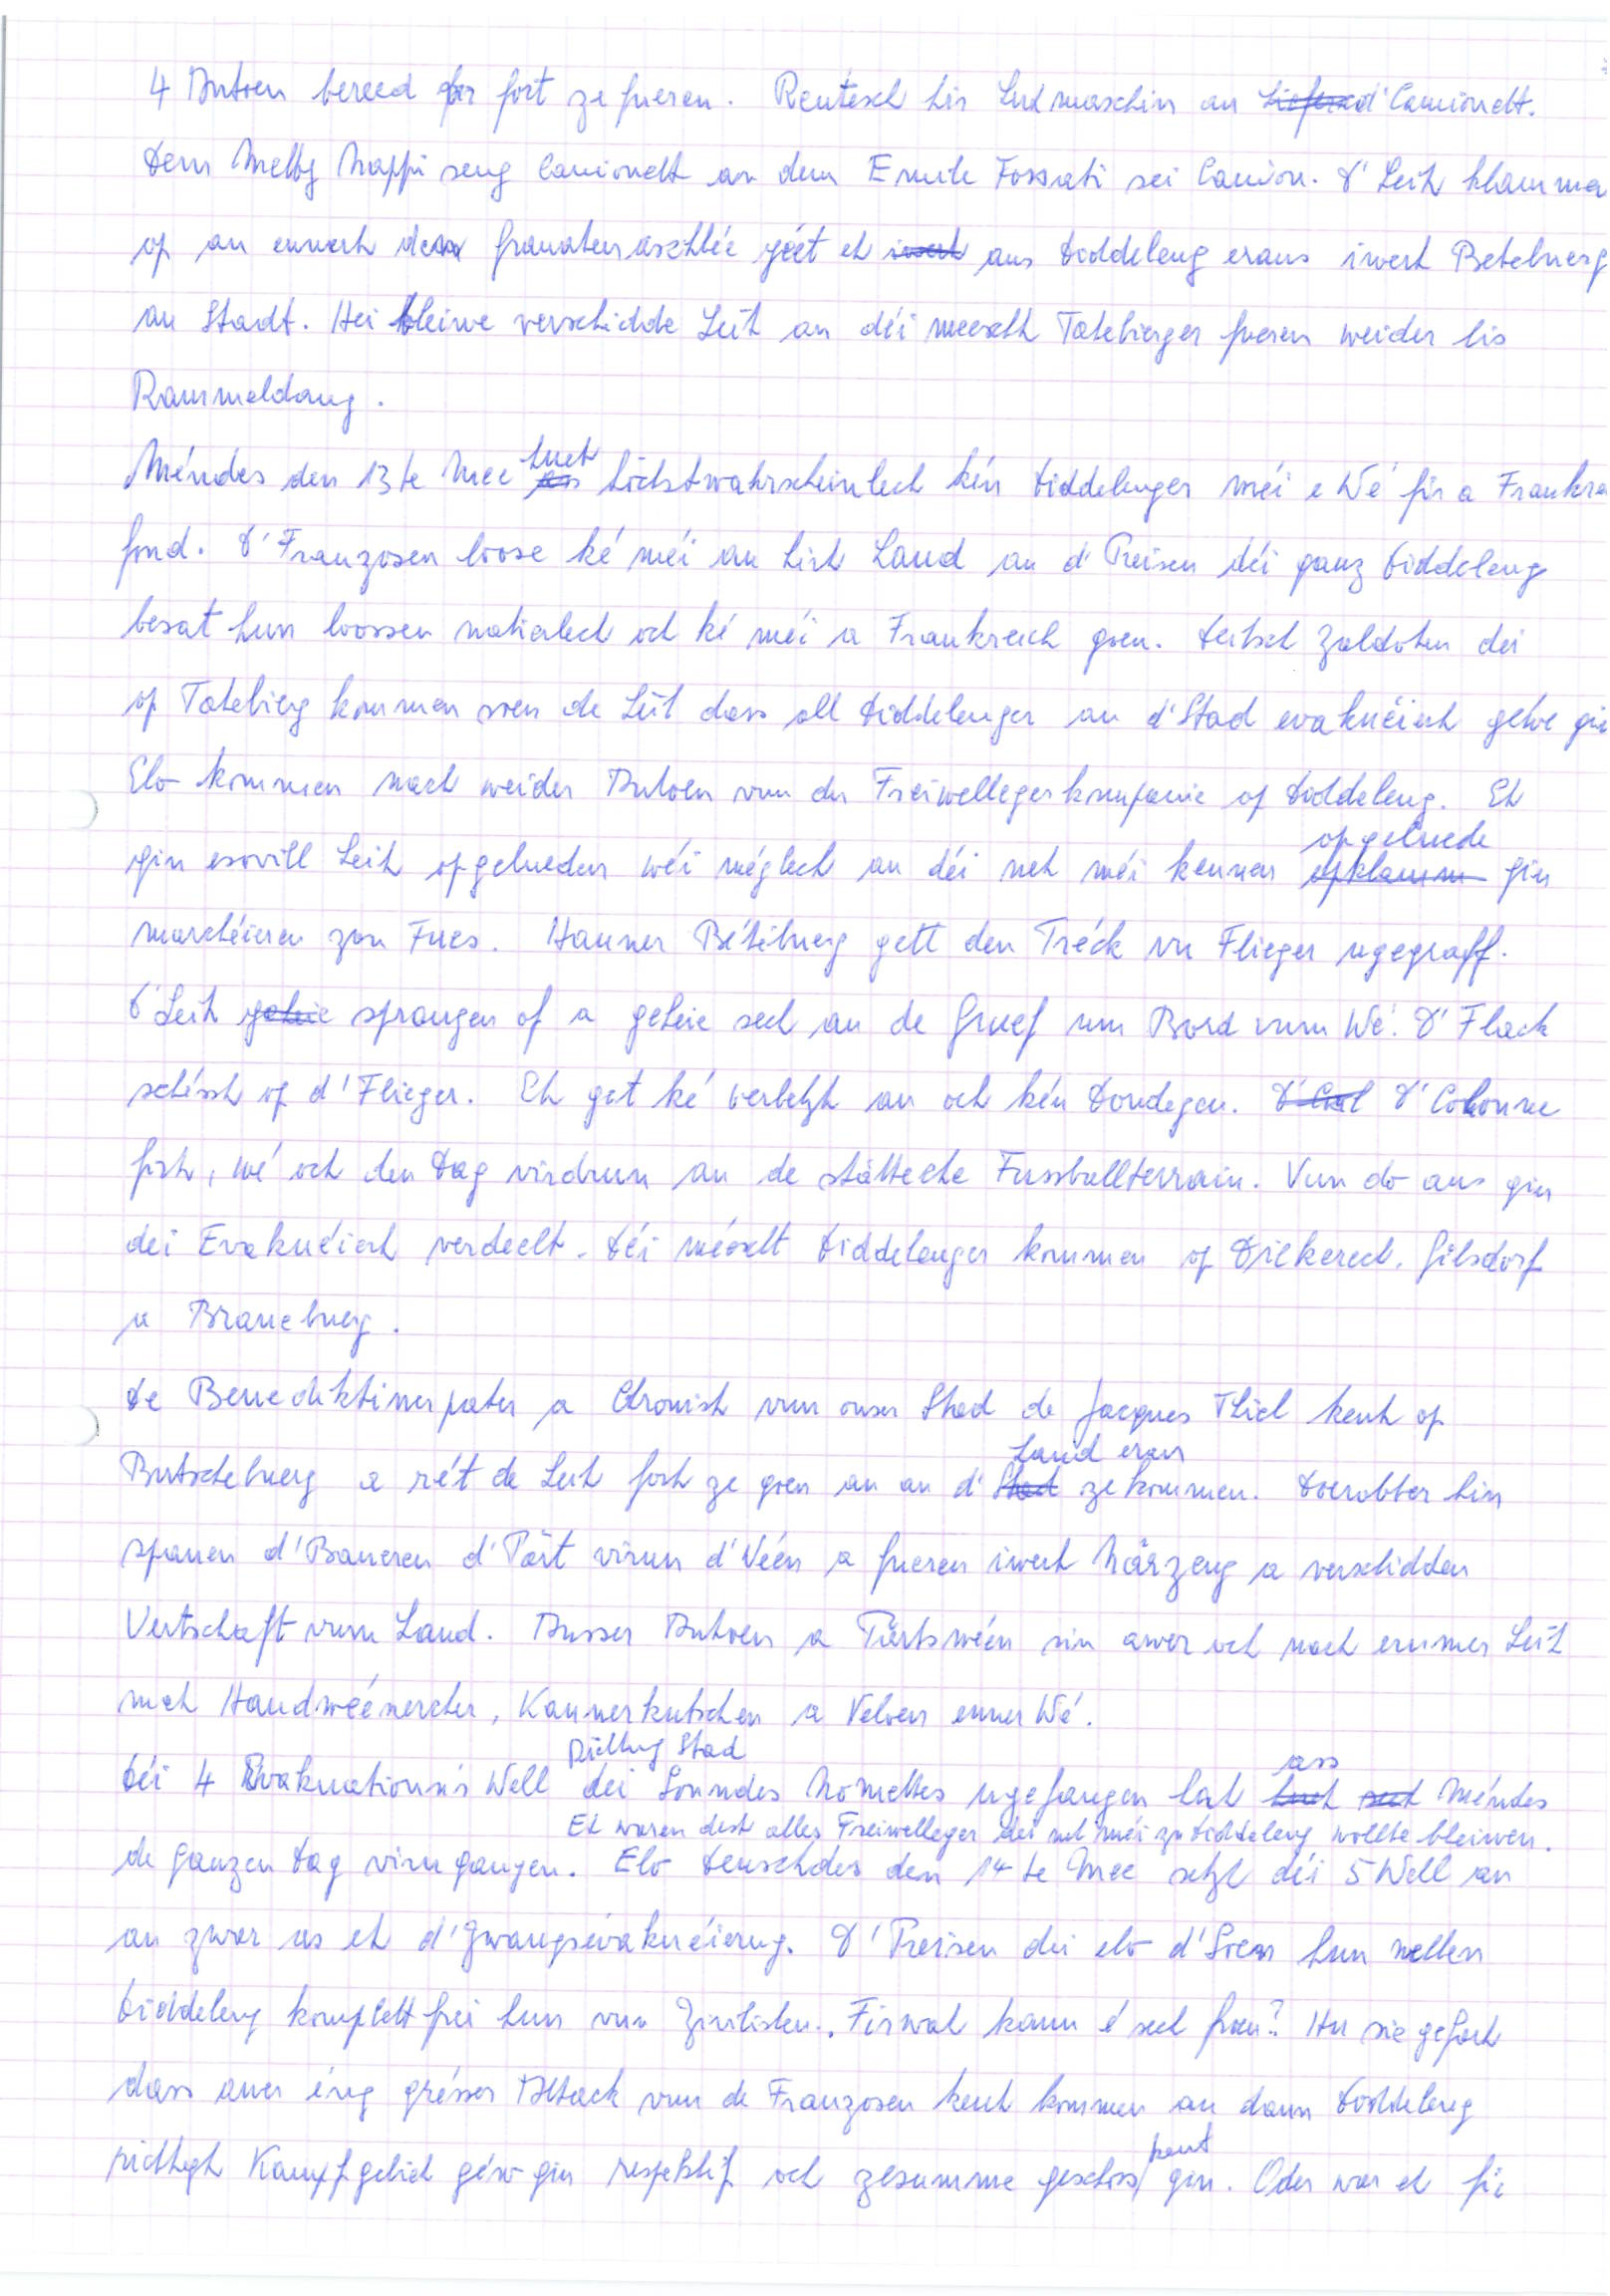 4 Autoen bereed fir fort ze fueren. Rentesch hir Lukmaschin an d'Camionett.
Dem Metty Nappi seng Camionett an dem Emile Fossati sei Camion. D'Leit klamme
op an ennert dem Granatenaschlée géet et aus Diddeleng eraus iwert Beteburg
an Stadt. Hei bleiwe verschidde Leit an déi meescht Tatebierger fueren weider bis
Rammeldang.
Méndes den 13te Mee huet héichstwahrscheinlech kén Diddelenger méi e Wé fir a Frankre
fond. D'Franzosen loosse ké méi an hirt Land an d'Preisen déi ganz Diddeleng
besat hun loossen natierlech och ké méi a Frankreich goen. Deitsch Zaldoten dei
op Tatebierg kommen soen de Leit dass all Diddelenger an d'Stad evakuéiert géwe gin
Elo kommen nach weider Autoen vun der Freiwellegerkompanie op Diddeleng. Et
gin esovill Leit opgelueden wéi méiglech an déi net méi kennen opgeluede gin
marschéieren zou Fuss. Hanner Béteburg gett den Tréck vu Flieger ugegraff.
D'Leit sprangen of a geheie sech an de Gruef um Bord vum Wé. D'Flack
schéisst op d'Flieger. Et get ké verletzt an och kén Doudegen. D'Colonne
fiert, wé och den Dag virdrun an de stättesche Fussballterrain. Vun do aus gin
dei Evakuéiert verdeelt. Déi méescht Diddelenger kommen op Dikerech, Gilsdorf
a Braneburg.
De Benediktinerpater a Chronist vun onser Stad de Jacques Thiel kent op
Butschebuerg a rét de Leit fort ze goen an an d'Land eran ze kommen. Doerobber hin
spanen d'Baueren d'Päert virun d'Wéen a fueren iwert Närzeng a verschidden
Uertschaft vum Land. Ausser Autoen a Päertswéen sin awer och nach emmer Leit
mat Handwéenercher, Kannerkutschen a Veloen enner Wé.
Déi 4 Evakuatiouns Well Richtung Stad dei Sonndes Nomettes ugefangen hat ass Méndes
Et waren dest alles Freiwelleger dei net méi zu Diddeleng wollte bleiwen.
de ganzen Dag virugangen. Elo Denschdes den 14te Mee setzt déi 5 Well an
an zwar as et d'Zwangsevakuéierung. D'Preisen dei elo d'Soen hun wellen
Diddeleng komplett frei hun vun Zivilisten. Firwat kann é sech froen? Hu sie gefaart
dass awer éng grésser Attack vun de Franzosen kent kommen an dann Diddeleng
richtegt Kampfgebiet géw gin respektif och zesumme geschoss kent gin. Oder war et fir